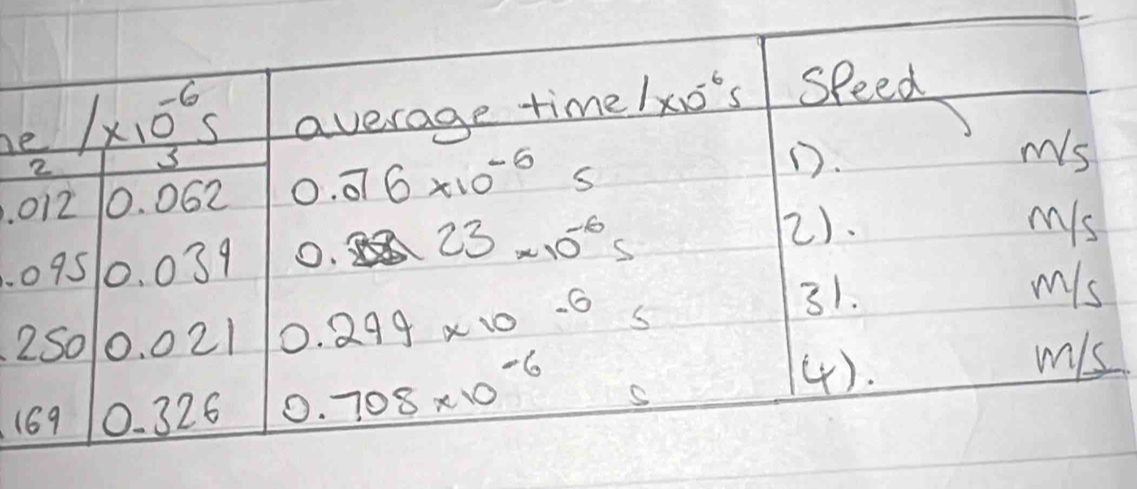 /x10⁻⁶s average time/x10⁻⁶s Speed
2 3
.012 0.062 0.76 x10⁻⁶ s 1). m/s
.095 0.039 0. 23 x10⁻⁶ s 2). m/s
.250 0.021 0.299 x10⁻⁶ s 3). m/s
.169 0.326 0.708 x10⁻⁶ s 4). m/s